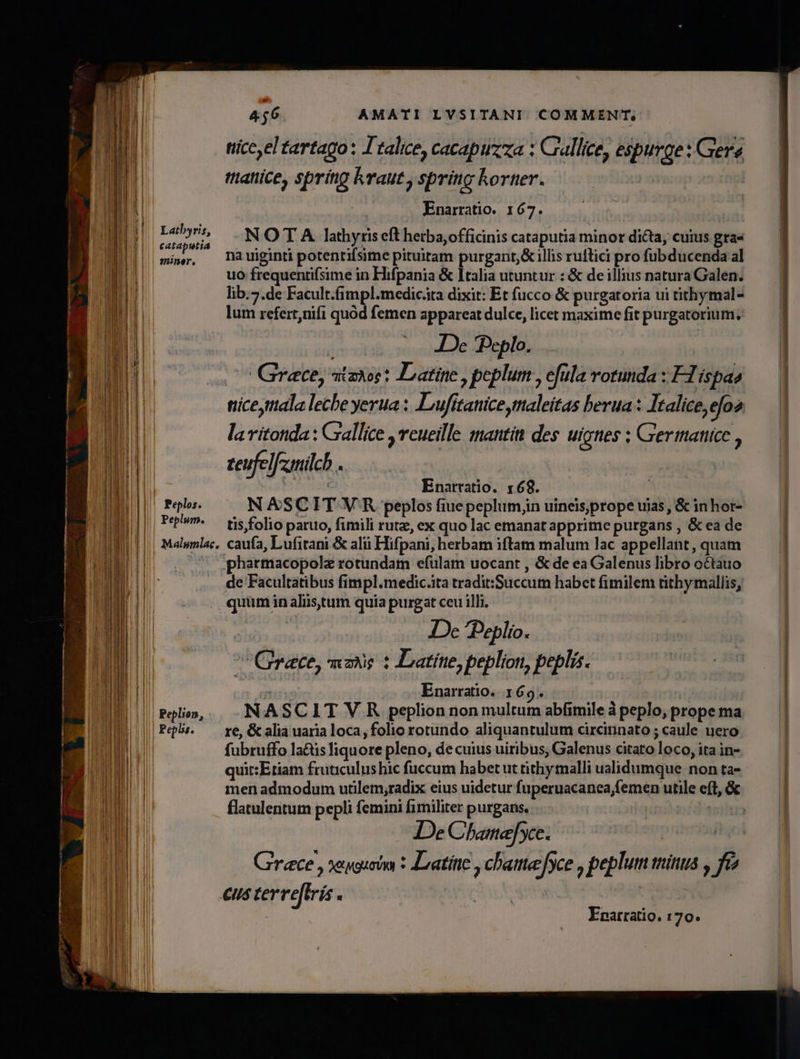 456 AMATI LVSITANI COMMENT.
nice,el tartago: Italice, cacapuzza : Gallice, espurge: Gers
manice, spring kraut, spring korner.
Enarratio. 167.
Lathyris, cataputia minor.
NOTA lathyris est herba,officinis cataputia minor dicta, cuius gra-
na uiginti potentissime pituitam purgant,& illis rustici pro subducenda al
uo frequentissime in Hispania & Italia utuntur : & de illius natura Galen.
lib.7.de Facult.simpl.medic.ita dixit: Et succo & purgatoria ui tithymal-
lum refert,nisi quòd semen appareat dulce, licet maxime sit purgatorium.
De Peplo.
Græce, πέπλος: Latine, peplum, esula rotunda : Hispas
nice,mala leche yerua : Lusitanice,maleitas herua : Italice,eso-
la ritonda: Gallice, reueille mantin des uignes : Germanice,
teufelszmilch.
Enarratio. 168.
Peplos. Peplum. Malumlac.
NASCITVR peplos siue peplum,in uineis,prope uias, & in hor-
tis,folio paruo, simili rutæ, ex quo lac emanat apprime purgans, & ea de
causa, Lusitani & alii Hispani, herbam istam malum lac appellant, quam
pharmacopolæ rotundam esulam uocant, & de ea Galenus libro octauo
de Facultatibus simpl.medic.ita tradit:Succum habet similem tithymallis,
quum in aliis,tum quia purgat ceu illi.
De Peplio.
Græce, πεπλίς : Latine, peplion, peplis.
Enarratio. 169.
Peplion, Peplis.
NASCITVR peplion non multum absimile à peplo, prope ma
re, & alia uaria loca, folio rotundo aliquantulum circinnato ; caule uero
subruffo lactis liquore pleno, de cuius uiribus, Galenus citato loco, ita in-
quit:Etiam fruticulus hic succum habet ut tithymalli ualidumque non ta-
men admodum utilem,radix eius uidetur superuacanea,semen utile est, &
flatulentum pepli semini similiter purgans.
De Chamæsyce.
Græce, χαμαισύκη : Latine, chamæsyce, peplum minus, fi-
cus terrestris.
Enarratio. 170.